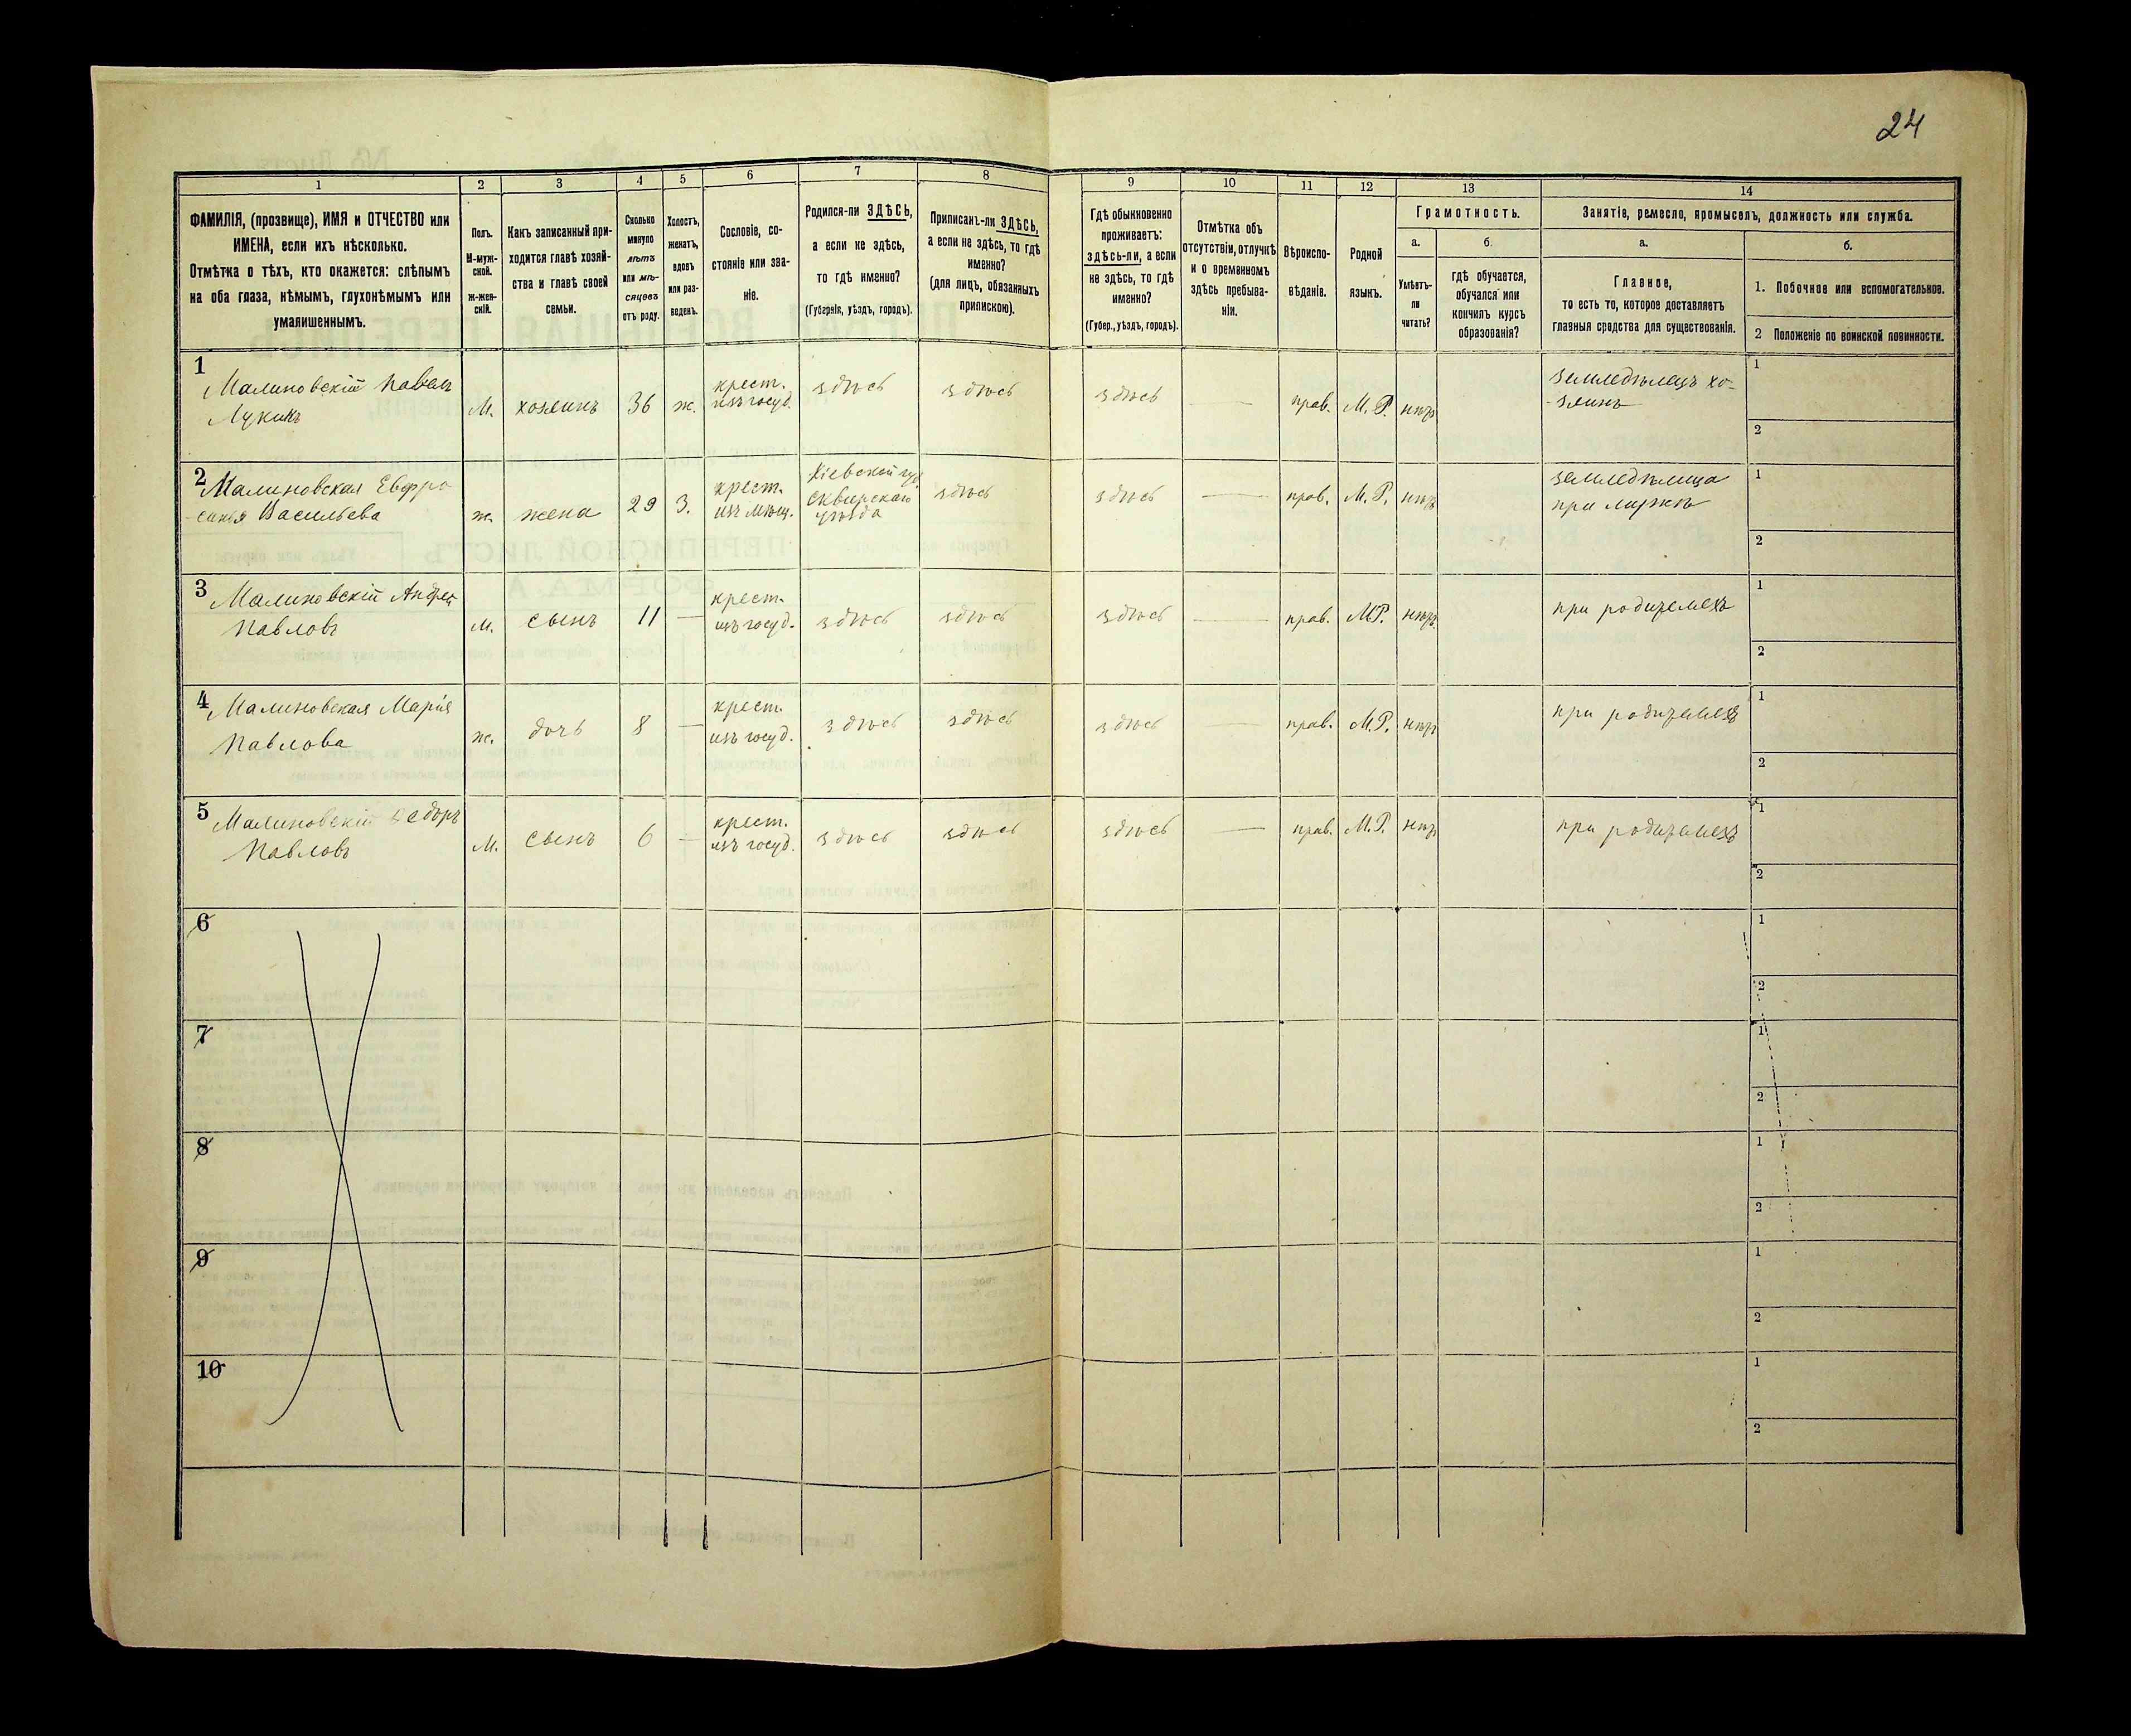 24
1
2
3
4
5
6
7
8
9
10
11
12
13
14
ФАМИЛІЯ, (прозвище), ИМЯ и ОТЧЕСТВО или
ИМЕНА, если ихъ нѣсколько.
Отмѣтка о тѣхъ, кто окажется: слѣпымъ
на оба глаза, нѣмымъ, глухонѣмымъ или
умалишеннымъ.
Полъ.
М-муж-
ской.
Ж-жен-
скій.
Какъ записанный при-
ходится главѣ хозяй-
ства и главѣ своей
семьи.
Сколько
минуло
лѣтъ
или мѣ-
сяцевъ
отъ роду.
Холостъ,
женатъ,
вдовъ
или раз-
веденъ.
Сословіе, со-
стояніе или зва-
ніе.
Родился-ли ЗДѢСЬ,
а если не здѣсь,
то гдѣ именно?
(Губернія, уѣздъ, городъ).
Приписанъ-ли ЗДѢСЬ,
а если не здѣсь, то гдѣ
именно?
(для лицъ, обязанныхъ
припискою).
Гдѣ обыкновенно
проживаетъ:
здѣсь-ли, а если
не здѣсь, то гдѣ
именно?
(Губер., уѣздъ, городъ).
Отмѣтка объ
отсутствіи, отлучкѣ
и о временномъ
здѣсь пребыва-
ніи.
Вѣроиспо-
вѣданіе.
Родной
языкъ.
Грамотность.
а.
Умѣетъ-
ли
читать?
б.
гдѣ обучается,
обучался или
кончилъ курсъ
образованія?
Занятіе, ремесло, промыселъ, должность или служба.
а.
Главное,
то есть то, которое доставляетъ
главныя средства для существованія.
б.
1. Побочное или вспомогательное.
2 Положеніе по воинской повинности.
1
Малиновскій Павелъ
Лукинъ
М. хозяинъ 36 ж.
крест.
изъ госуд.
здѣсь здѣсь здѣсь — прав. М. Р. нѣтъ
земледѣлецъ хо-
зяинъ
1
2
2
Малиновская Евфро
синья Васильева
ж. жена 29 З.
крест.
изъ мѣщ.
Кіевской губ.
Сквирскаго
уѣзда
здѣсь здѣсь — прав. М. Р. нѣтъ
земледѣлица
при мужѣ
1
2
3
Малиновскій Андрей
Павловъ
М. сынъ 11 —
крест.
изъ госуд.
здѣсь здѣсь здѣсь — прав. М.Р. нѣтъ
при родителяхъ
1
2
4
Малиновская Марія
Павлова
ж. дочь 8 —
крест.
изъ госуд.
здѣсь здѣсь здѣсь — прав. М.Р. нѣтъ
при родителяхъ
1
2
5
Малиновскій Федоръ
Павловъ
М. сынъ 6 —
крест.
изъ госуд.
здѣсь здѣсь здѣсь — прав. М.Р. нѣтъ
при родителяхъ
1
2
6
1
2
7
1
2
8
1
2
9
1
2
10
1
2